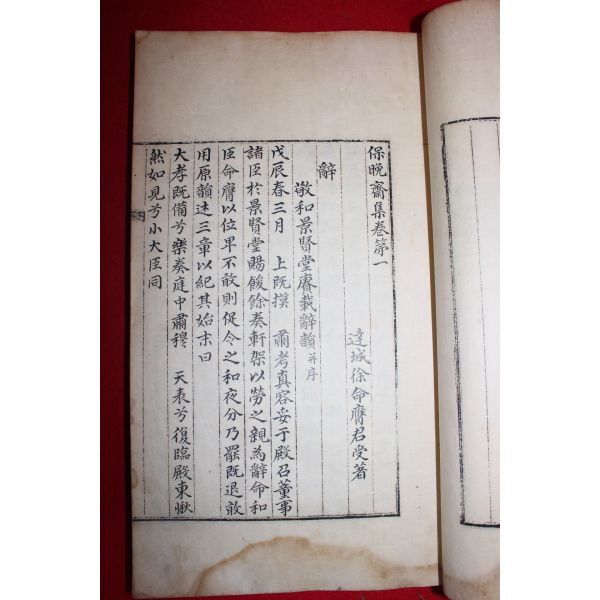 保晩齋集卷第一
達城徐命膺君受著
辭
敬和景賢堂賡載辭韻 并序
戊辰春三月 上旣摸 肅考真容妥于殿召董事
諸臣於景賢堂賜餕餘奏軒架以勞之親為辭命和
臣命膺以位卑不敢則促令之和夜分乃罷旣退敢
用原韻述三章以紀其始末曰
大孝旣備兮樂奏庭中肅穆 天表兮復臨殿東愀
然如見兮小大臣同